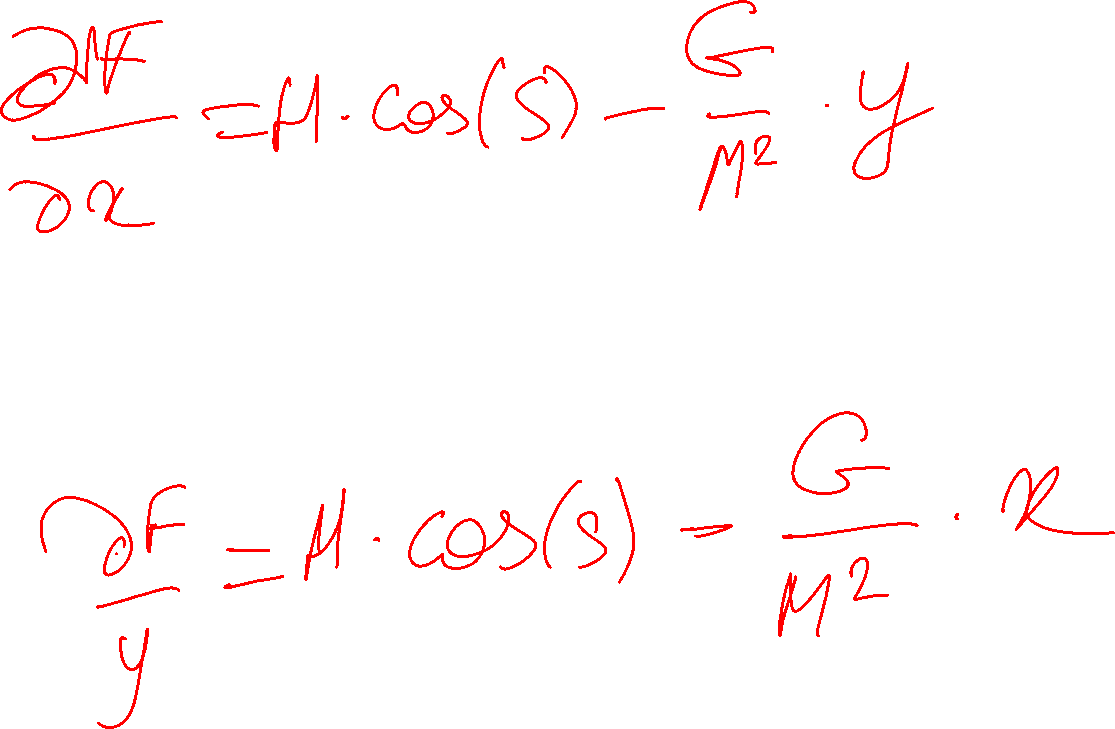 ∂F/∂x = M · cos(S) − G/M² · y
∂F/y = M · cos(s) − G/M² · x